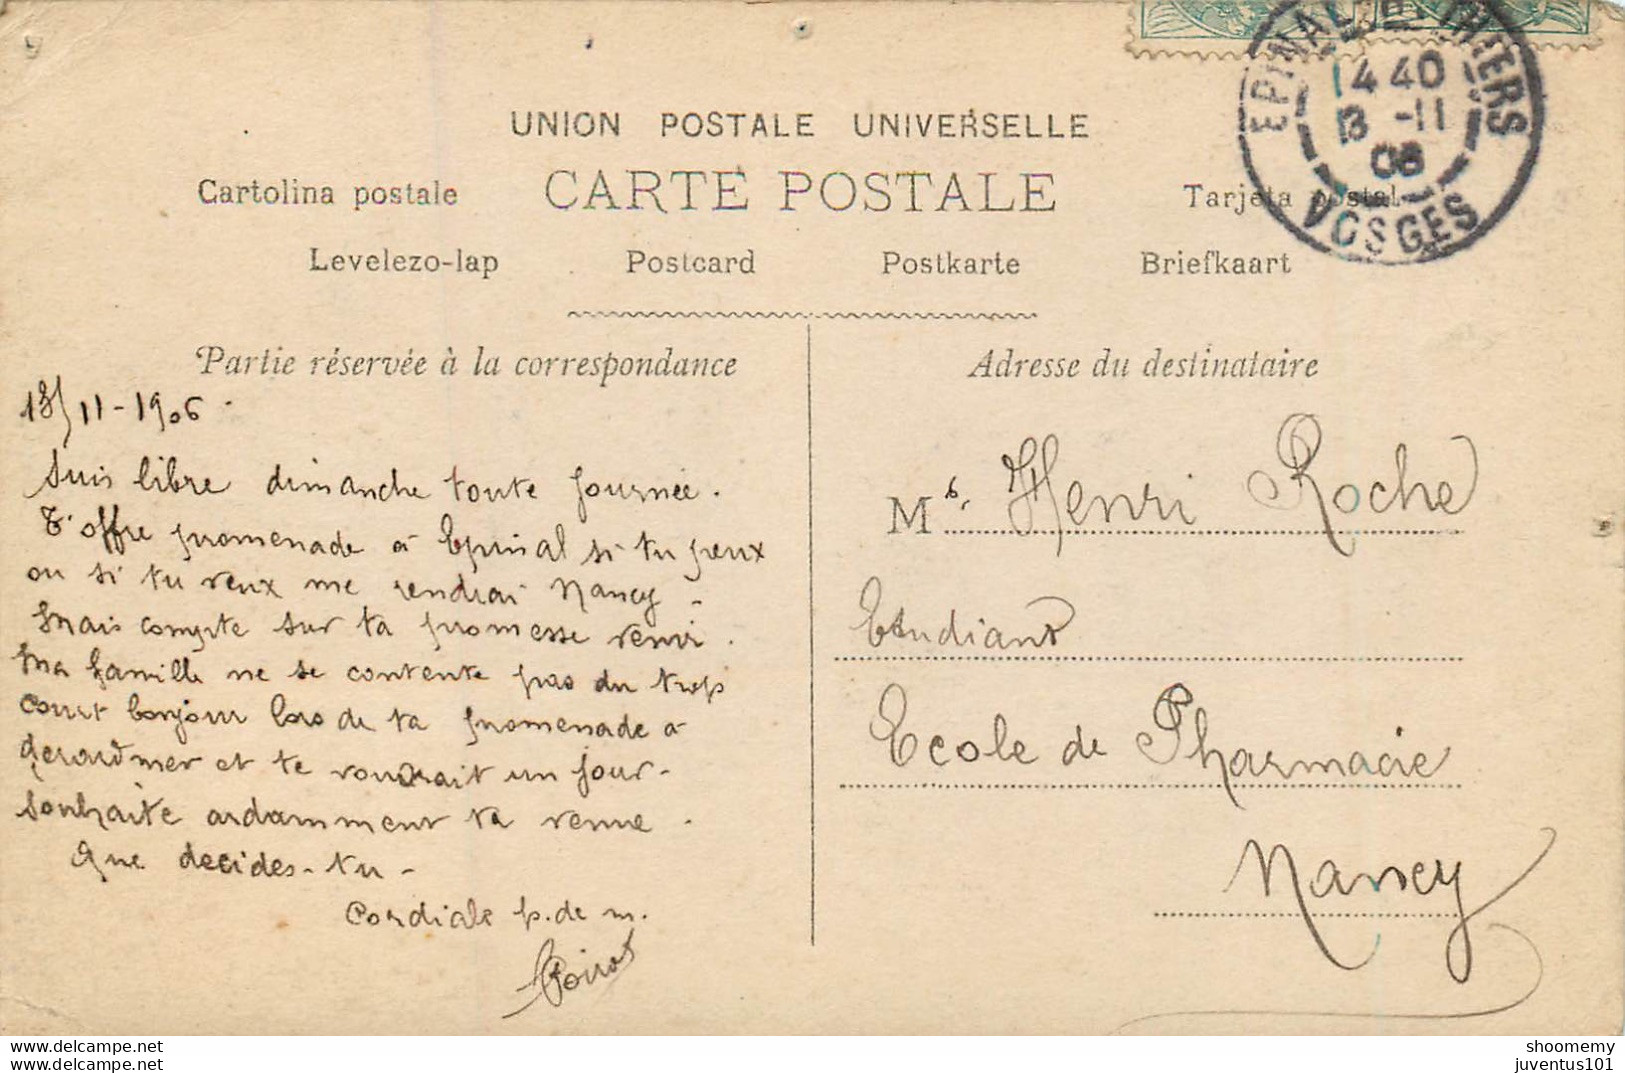 EPINAL-BLTHIERS
14 40
13 -11
06
VOSGES
UNION POSTALE UNIVERSELLE
Cartolina postale CARTE POSTALE Tarjeta postal
Levelezo-lap Postcard Postkarte Briefkaart
Partie réservée à la correspondance
13/11-1906.
Suis libre dimanche toute journée.
T'offre promenade à Epinal si tu peux
ou si tu veux me rendrai Nancy -
Mais compte sur ta promesse venir.
Ma famille ne se contente pas du trop
court bonjour lors de ta promenade à
Gerardmer et te voudrait un jour -
Souhaite ardamment ta venue.
Que decides-tu -
Cordiale p. de m.
Poirot
Adresse du destinataire
Mr. Henri Roche
Etudiant
Ecole de Pharmacie
Nancy
www.delcampe.net
www.delcampe.net
shoomemy
juventus101